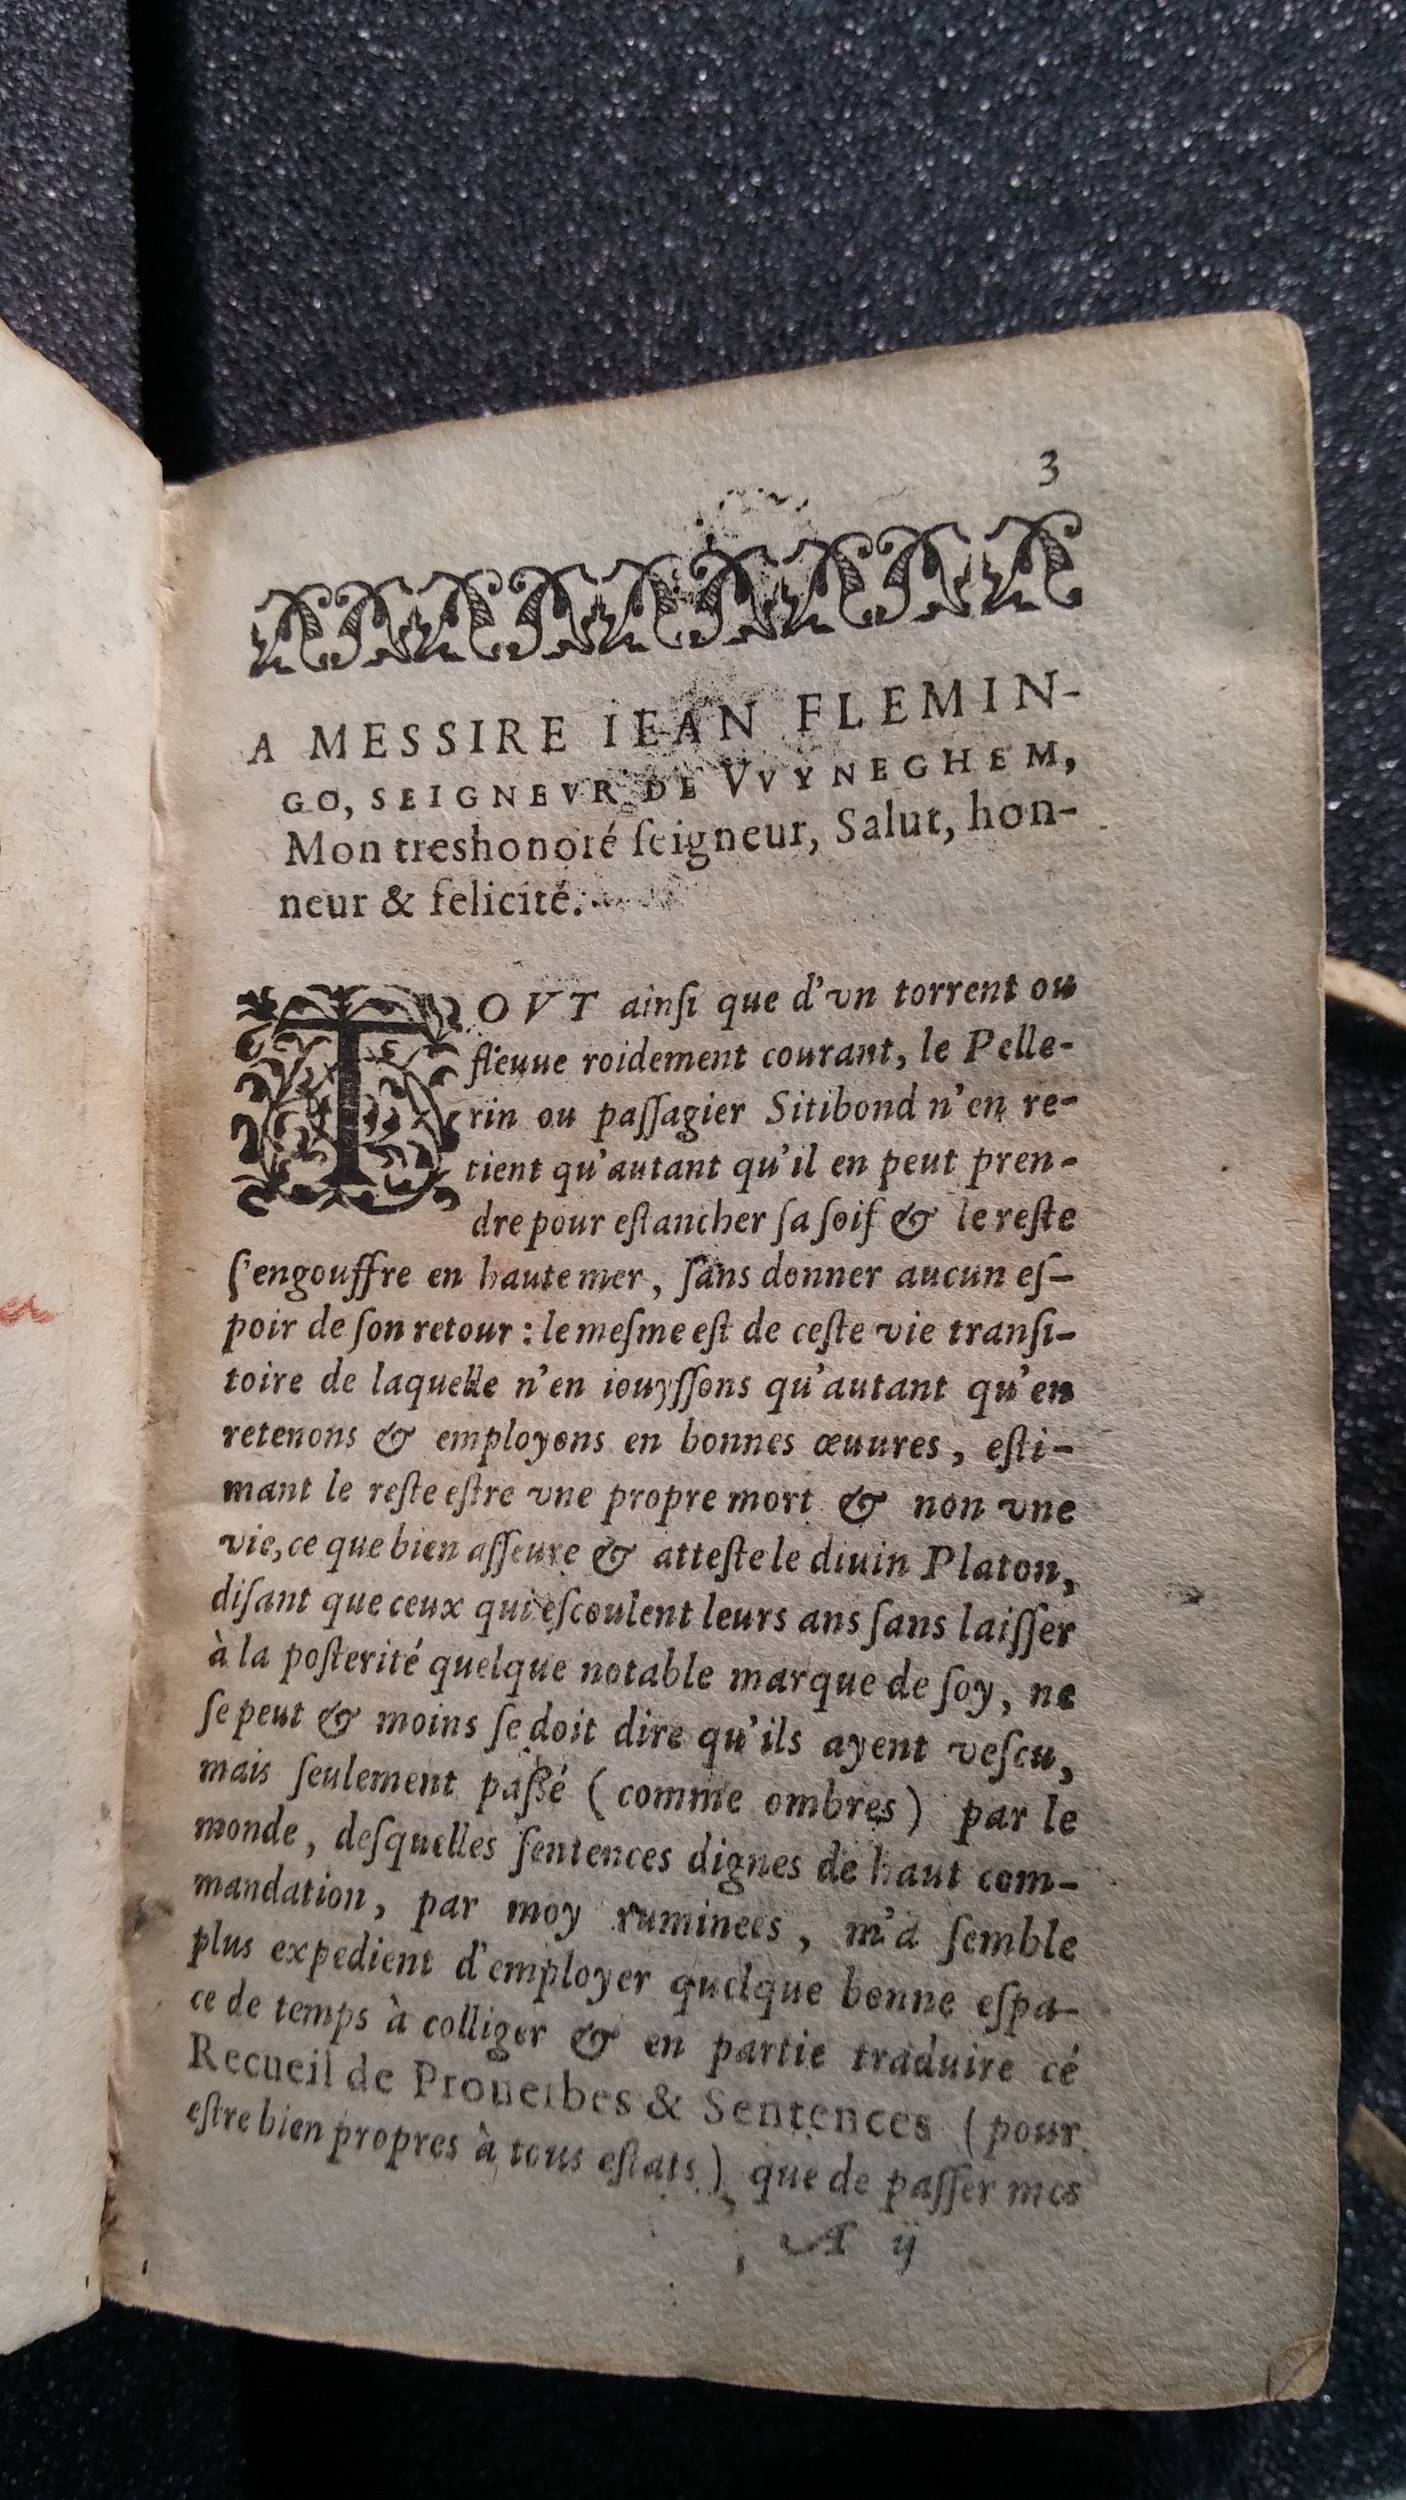 3
A MESSIRE IEAN FLEMIN-
GO, SEIGNEVR DE VVYNEGHEM,
Mon treshonoré ſeigneur, Salut, hon-
neur & felicité.
TOVT ainſi que d'vn torrent ou
fleuue roidement courant, le Pelle-
rin ou paſſagier Sitibond n'en re-
tient qu'autant qu'il en peut pren-
dre pour eſtancher ſa ſoif & le reſte
ſ'engouffre en haute mer, ſans donner aucun eſ-
poir de ſon retour : le meſme eſt de ceſte vie tranſi-
toire de laquelle n'en iouyſſons qu'autant qu'en
retenons & employons en bonnes œuures, eſti-
mant le reſte eſtre vne propre mort & non vne
vie, ce que bien aſſeure & atteſte le diuin Platon,
diſant que ceux qui eſcoulent leurs ans ſans laiſſer
à la poſterité quelque notable marque de ſoy, ne
ſe peut & moins ſe doit dire qu'ils ayent veſcu,
mais ſeulement paſſé ( comme ombres ) par le
monde, deſquelles ſentences dignes de haut com-
mandation, par moy ruminees, m'a ſemble
plus expedient d'employer quelque bonne eſpa-
ce de temps à colliger & en partie traduire cé
Recueil de Prouerbes & Sentences ( pour
eſtre bien propres à tous eſtats ) que de paſſer mes
A ij